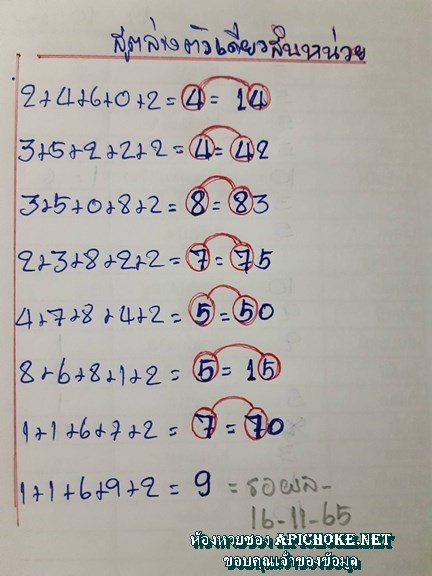 สูตรล่างตัวเดียวสิบหน่วย
2+4+6+0+2=4=14
3+5+2+2+2=4=42
3+5+0+8+2=8=83
2+3+8+2+2=7=75
4+7+8+4+2=5=50
8+6+8+1+2=5=15
1+1+6+7+2=7=70
1+1+6+9+2=9=รอผล-
16-11-65
ห้องหวยของ APICHOKE.NET
ขอบคุณเจ้าของข้อมูล